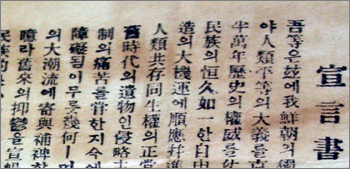 宣言書
吾等은玆에我鮮朝의獨
야人類平等의大義를
半萬年歷史의權威를
民族의恒久如一한自由
造의大機運에順應幷進
人類共存同生權의正當
舊時代의遺物인侵略主
制의痛苦를嘗한지今에
障礙됨이무릇幾何ㅣ며
의大潮流에寄與補裨할
噫라舊來의抑鬱을宣暢